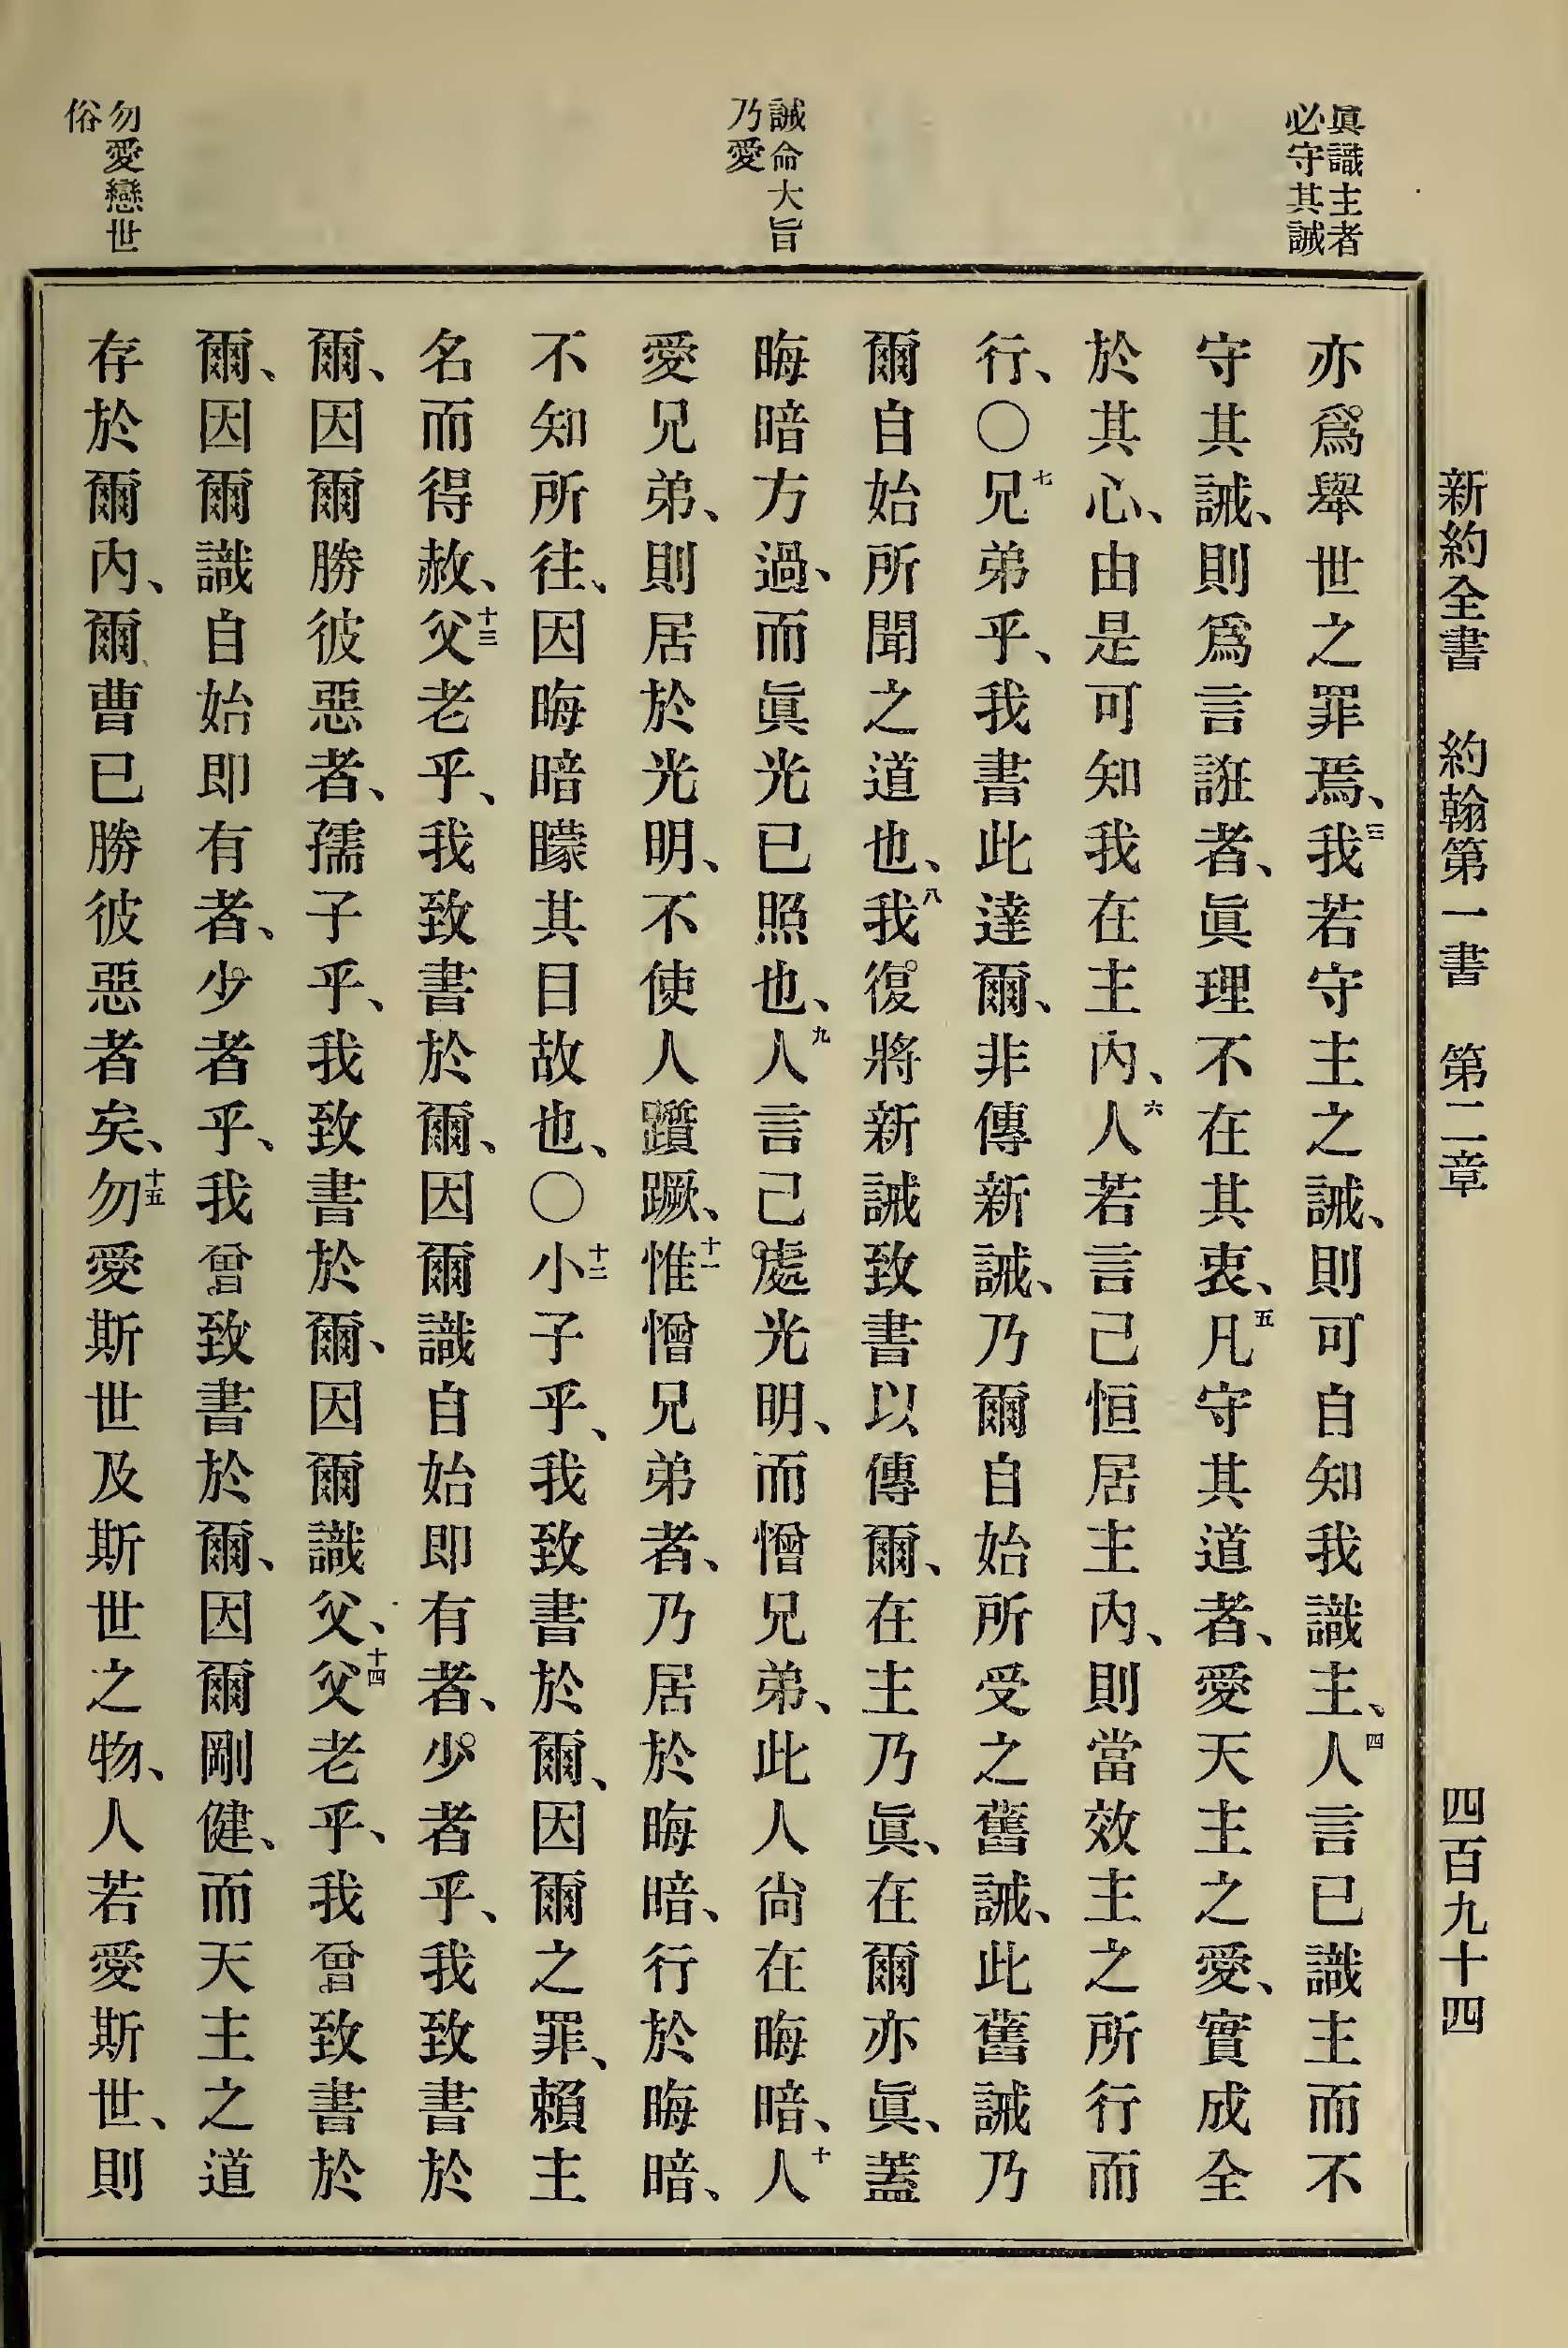 新約全書 約翰第一書 第二章 四百九十四
眞識主者
必守其誡
誡命大旨
乃愛
勿愛戀世
俗
亦爲舉世之罪焉、三我若守主之誡、則可自知我識主、四人言已識主而不
守其誡、則爲言誑者、眞理不在其衷、五凡守其道者、愛天主之愛、實成全
於其心、由是可知我在主內、六人若言己恒居主內、則當效主之所行而
行、〇七兄弟乎、我書此達爾、非傳新誡、乃爾自始所受之舊誡、此舊誡乃
爾自始所聞之道也、八我復將新誡致書以傳爾、在主乃眞、在爾亦眞、蓋
晦暗方過、而眞光已照也、九人言己處光明、而憎兄弟、此人尙在晦暗、十人
愛兄弟、則居於光明、不使人躓蹶、十一惟憎兄弟者、乃居於晦暗、行於晦暗、
不知所往、因晦暗矇其目故也、〇十二小子乎、我致書於爾、因爾之罪、賴主
名而得赦、十三父老乎、我致書於爾、因爾識自始即有者、少者乎、我致書於
爾、因爾勝彼惡者、孺子乎、我致書於爾、因爾識父、十四父老乎、我曾致書於
爾、因爾識自始即有者、少者乎、我曾致書於爾、因爾剛健、而天主之道
存於爾內、爾曹已勝彼惡者矣、十五勿愛斯世及斯世之物、人若愛斯世、則